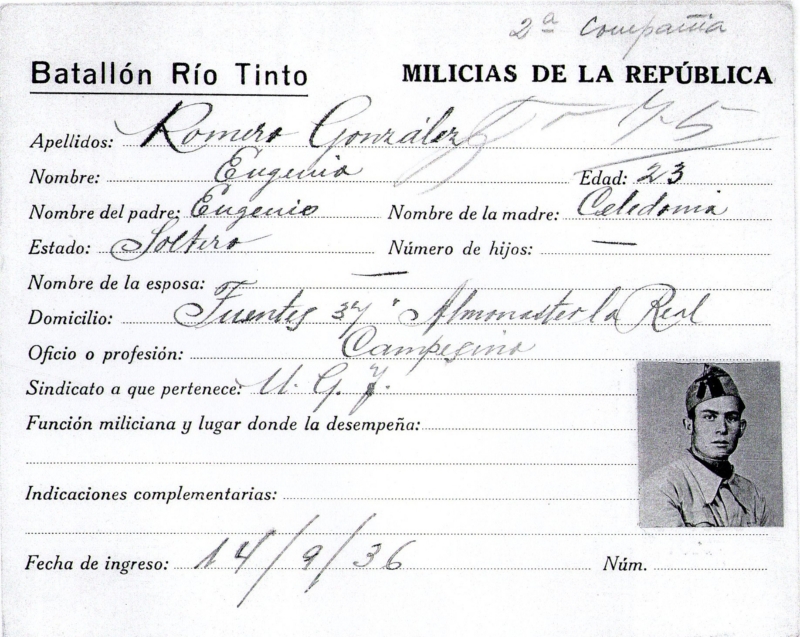 2ª Compañia
Batallón Río Tinto MILICIAS DE LA REPÚBLICA
Apellidos: Romero González
Nombre: Eugenio Edad: 23
Nombre del padre: Eugenio Nombre de la madre: Celedonia
Estado: Soltero Número de hijos: —
Nombre de la esposa: —
Domicilio: Fuentes 37 " Almonaster la Real
Oficio o profesión: Campesino
Sindicato a que pertenece: U. G. T.
Función miliciana y lugar donde la desempeña:
Indicaciones complementarias:
Fecha de ingreso: 14/9/36 Núm.